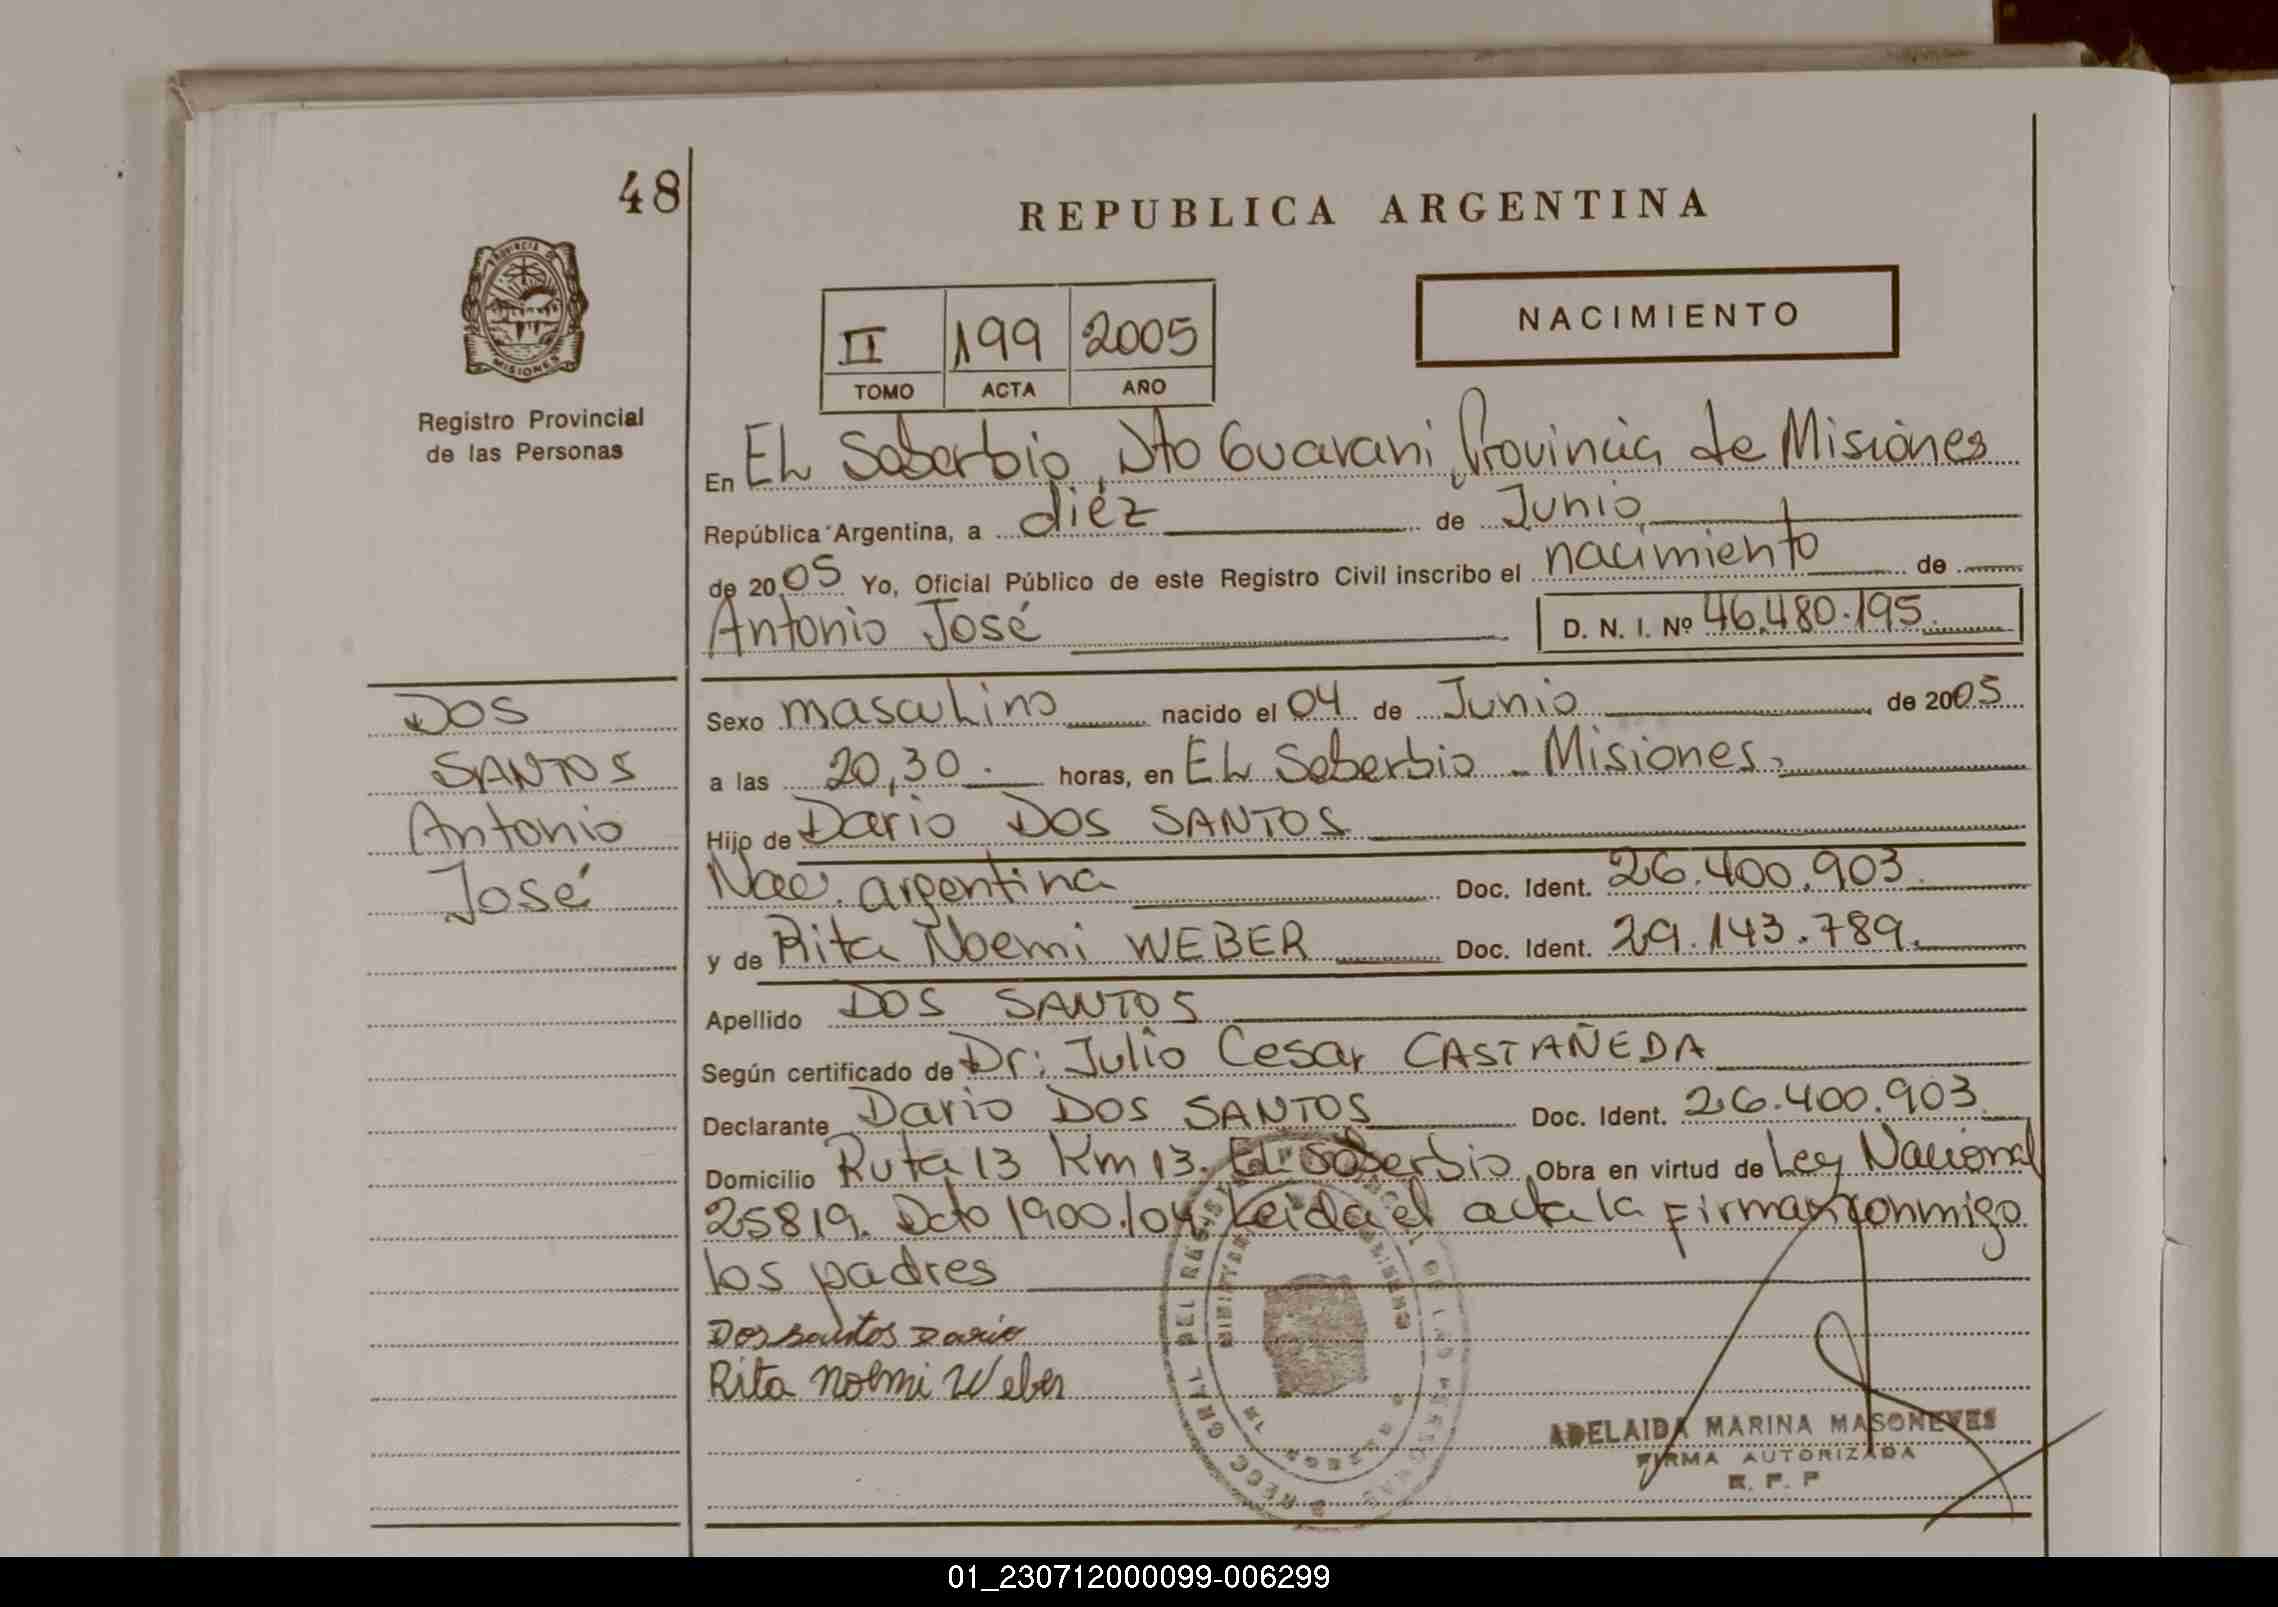 48
REPUBLICA ARGENTINA
PROVINCIA DE
MISIONES
Registro Provincial
de las Personas
II 199 2005
TOMO ACTA AÑO
NACIMIENTO
En EL Soberbio, Dto Guarani, Provincia de Misiones
República Argentina, a diéz de Junio
de 2005 Yo, Oficial Público de este Registro Civil inscribo el nacimiento de
Antonio José D. N. I. Nº 46.480.195.
DOS
SANTOS
Antonio
José
Sexo masculino nacido el 04 de Junio de 2005
a las 20,30. horas, en EL Soberbio - Misiones.
Hijo de Dario DOS SANTOS
Nac. argentina Doc. Ident. 26.400.903.
y de Rita Noemi WEBER Doc. Ident. 29.143.789.
Apellido DOS SANTOS
Según certificado de Dr: Julio Cesar CASTAÑEDA
Declarante Dario DOS SANTOS Doc. Ident. 26.400.903
Domicilio Ruta 13 Km 13. EL Soberbio Obra en virtud de Ley Nacional
25819. Dcto 1900/04. Leida el acta la firman conmigo
los padres
Dos santos Dario
Rita noemi Weber
ADELAIDA MARINA MASONEVES
FIRMA AUTORIZADA
R. P. P
01_230712000099-006299